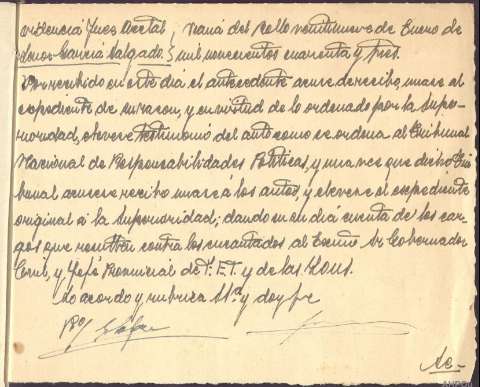 Providencia Juez Acctal, } Viana del Bollo veintinueve de Enero de
Señor García Salgado. } mil novecientos cuarenta y tres.
Por recibido en este día el antecedente acuse de recibo, unase al
expediente de su razon, y en virtud de lo ordenado por la Supe-
rioridad, elevese testimonio del auto como se ordena al Tribunal
Nacional de Responsabilidades Politicas, y una vez que dicho Tri-
bunal acuse recibo unase á los autos, y elevese el expediente
original á la Superioridad; dando en su día cuenta de los car-
gos que resulten contra los encartados al Excmo Sr Gobernador
Civil, y Jefe Provincial de F. E. T. y de las Jons.
Lo acordo y rubrica S.Sª y doy fe